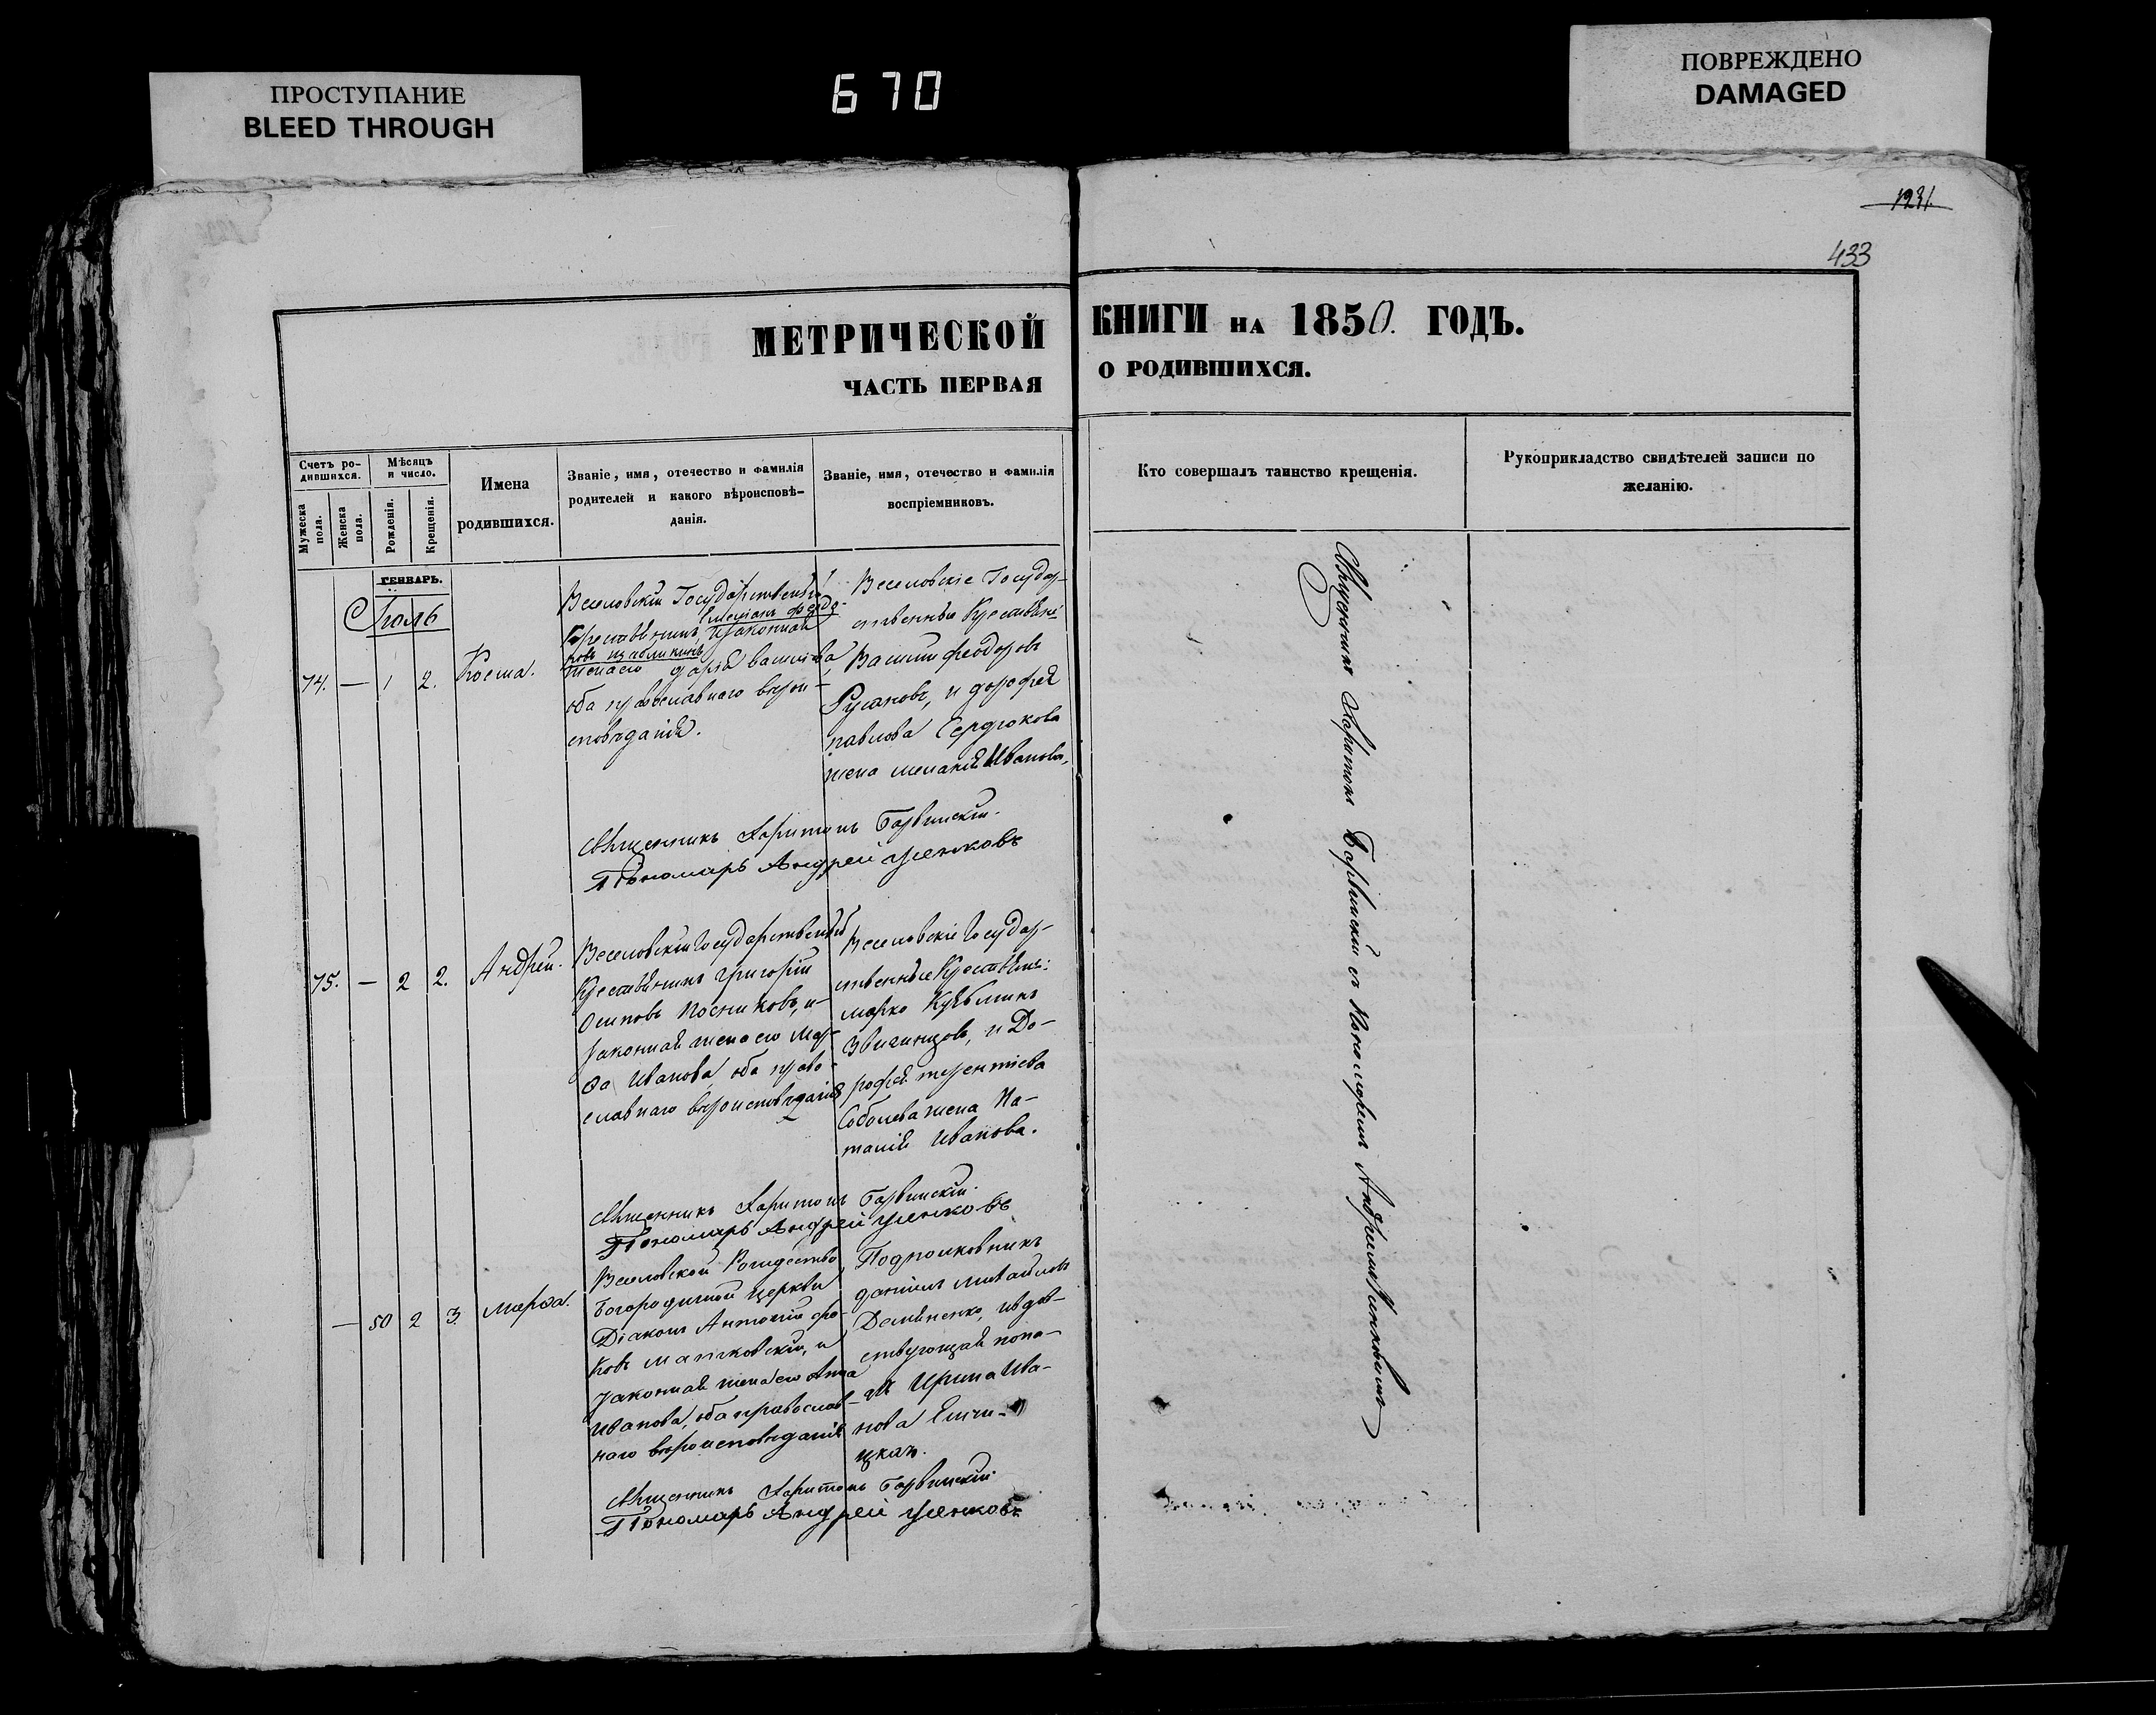 ПРОСТУПАНИЕ
BLEED THROUGH
670
ПОВРЕЖДЕНО
DAMAGED
1231
433
МЕТРИЧЕСКОЙ КНИГИ НА 1850. ГОДЪ.
ЧАСТЬ ПЕРВАЯ О РОДИВШИХСЯ.
Счетъ ро-
дившихся.
Мужеска
пола.
Женска
пола.
Мѣсяцъ
и число.
Рожденія.
Крещенія.
Имена
родившихся.
Званіе, имя, отечество и фамилія
родителей и какого вѣроисповѣ-
данія.
Званіе, имя, отечество и фамилія
воспріемниковъ.
Кто совершалъ таинство крещенія.
Рукоприкладство свидѣтелей записи по
желанію.
ГЕНВАРЬ.
Іюль
74. — 1 2.
Косма.
Веселовскій Государственный
Крестьянинъ,
законная
жена его Дарія Василіева
оба православнаго вѣрои-
сповѣданія.
Веселовскіе Государ-
ственные Крестьяне:
Василій Феодоровъ
Русановъ, и Дорофея
Павлова Сердюкова
жена Меланія Иванова,
Священникъ Харитонъ Барвинскій.
Пономарь Андрей Уленковъ
75. — 2 2.
Андрей.
Веселовскій Государственный
Крестьянинъ Григорій
Осиповъ Посниковъ, и
законная жена его Мар-
ѳа Иванова, оба право-
славнаго вѣроисповѣданія
Веселовскіе Государ-
ственные Крестьяне:
Марко Кузьминъ
Звигинцовъ, и До-
рофея Терентіева
Соболева жена На-
талія Иванова.
Священникъ Харитонъ Барвинскій.
Пономарь Андрей Уленковъ
— 50 2 3.
Марѳа.
Веселовской Рождество
Богородичной Церкви
Діаконъ Антоній
и
законная жена его Анна
Иванова, оба православ-
наго вѣроисповѣданія
Подполковникъ
Даніилъ Михайловъ
Демяненко, и вдов-
ствующая попа-
дя Ирина Ива-
нова
Священникъ Харитонъ Барвинскій
Пономарь Андрей Уленковъ
Священникъ Харитонъ Барвинскій съ Пономаремъ Андреемъ Уленковымъ